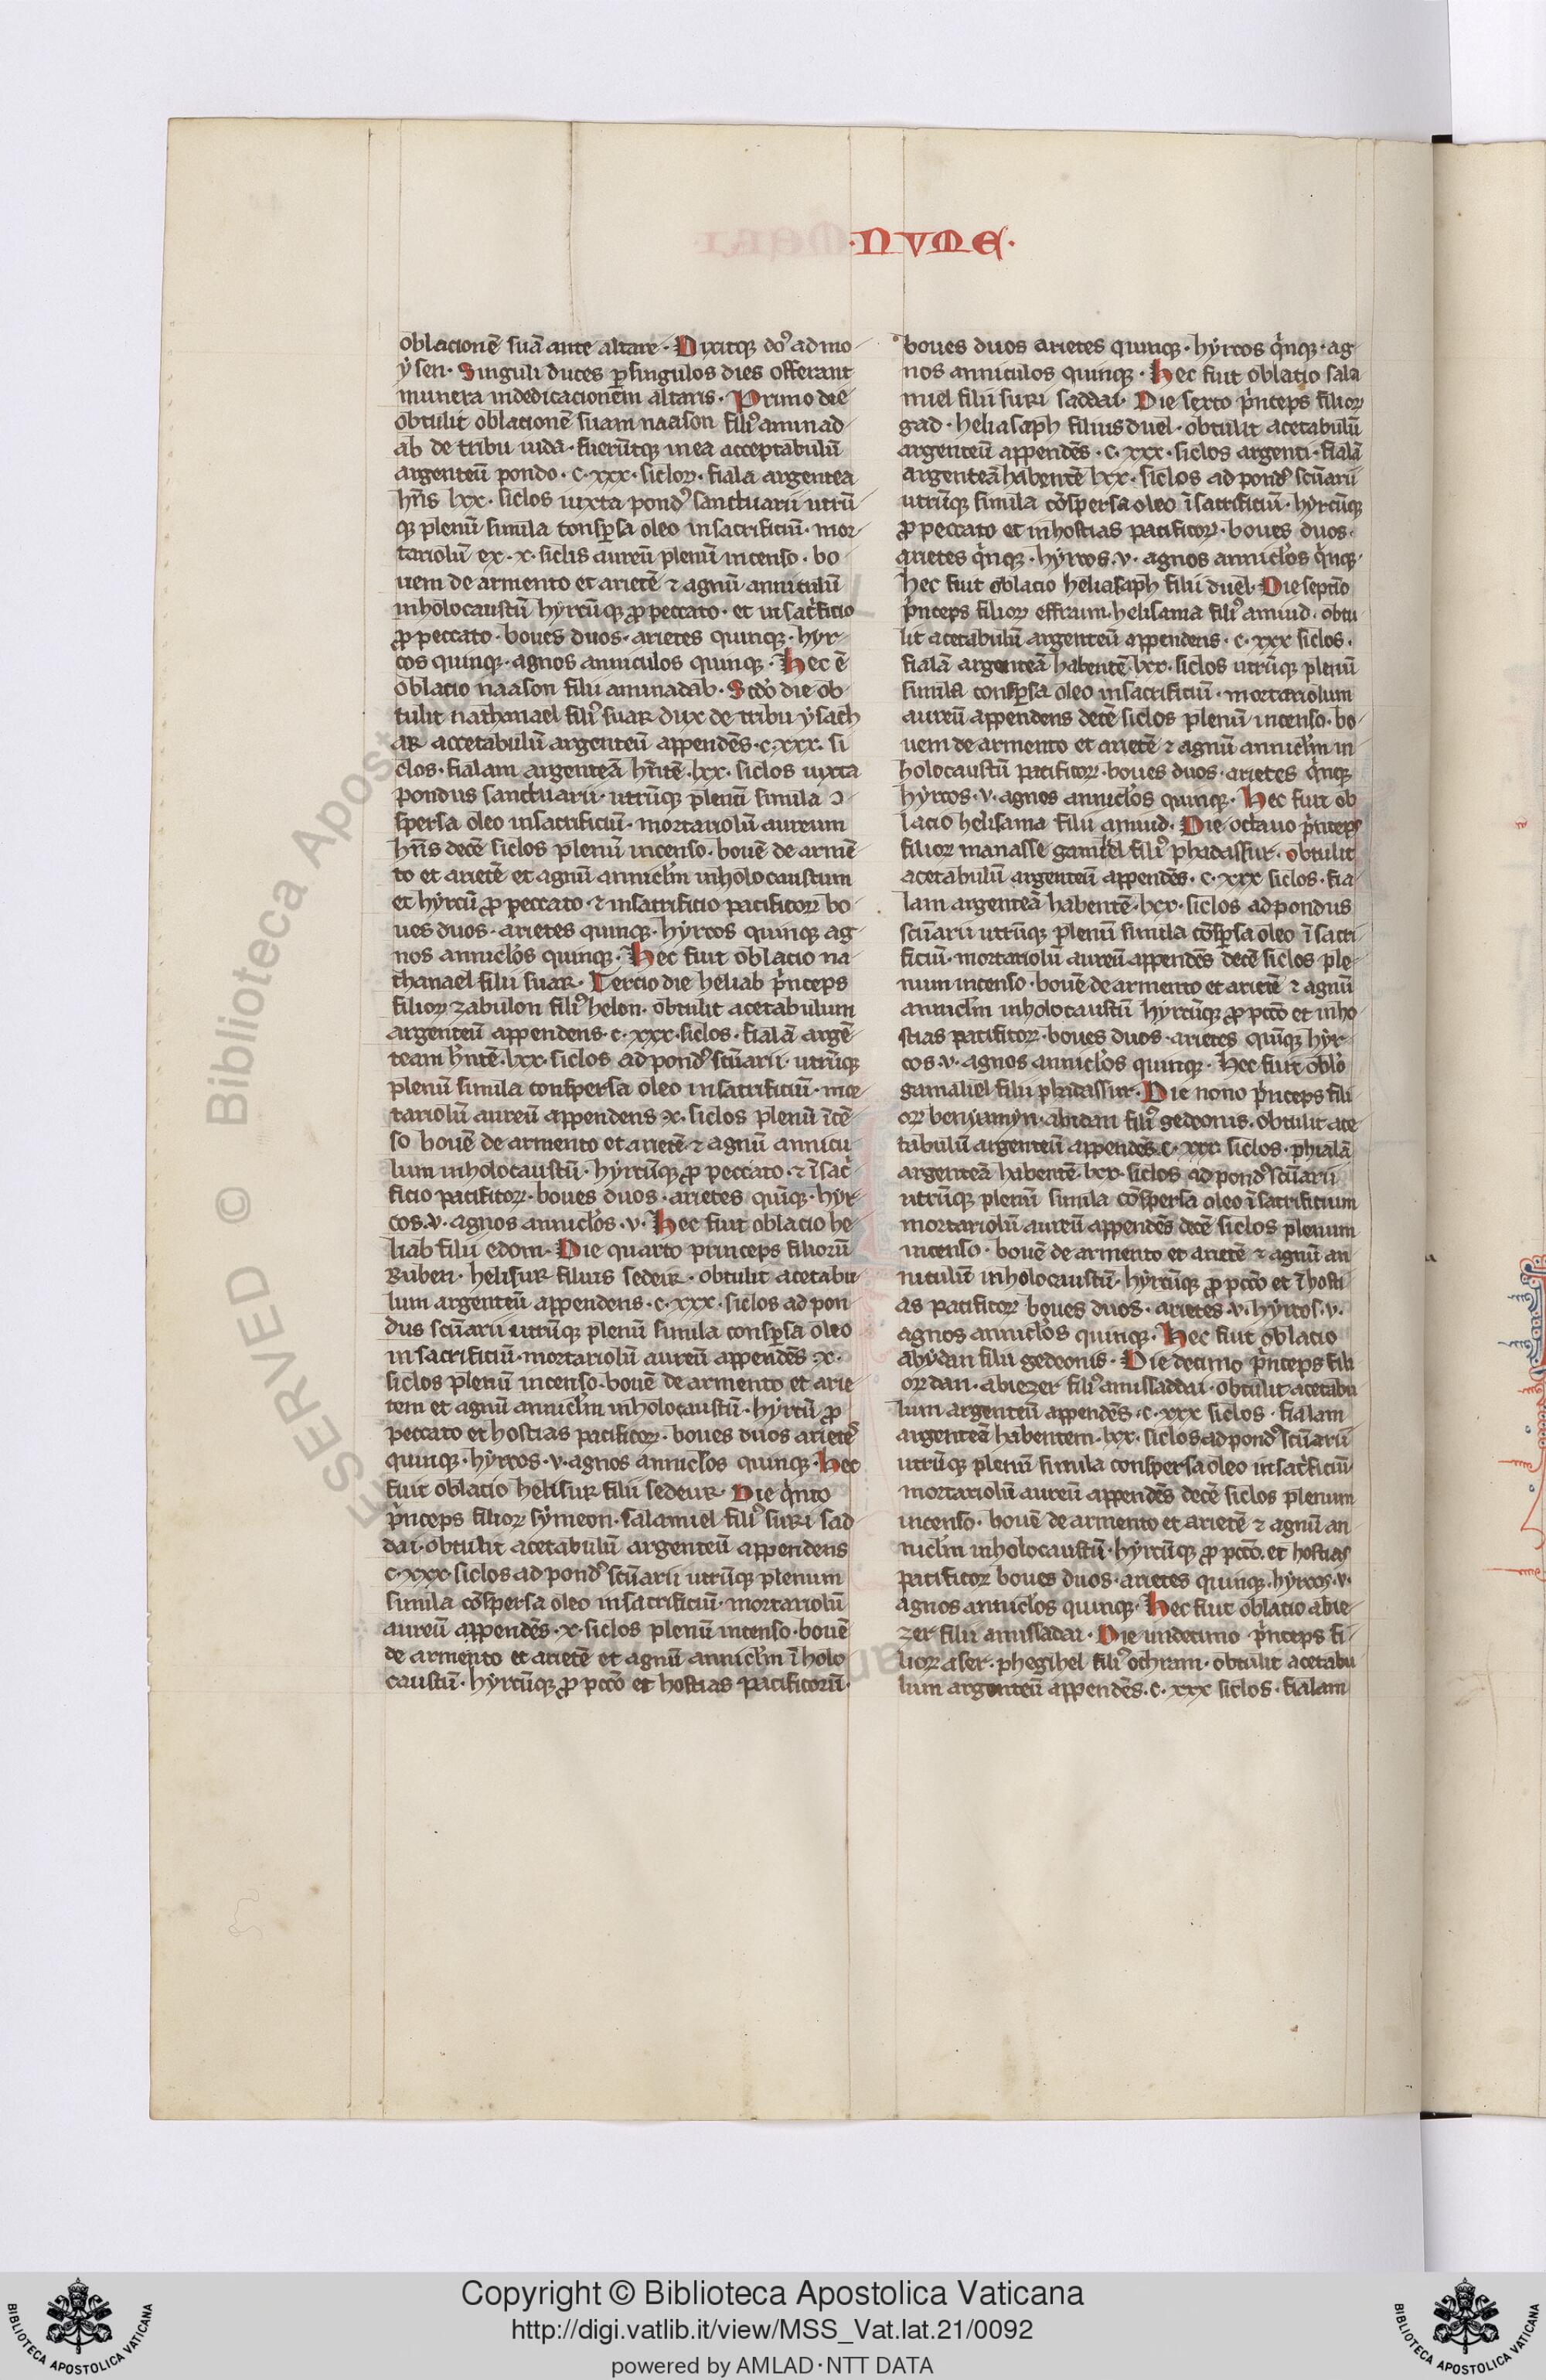 ·NVME·
oblationē suā ante altare· Dixitqꝫ dō᷒ ad mo
ysen· Singuli duces ꝑ singulos dies offerant
munera in dedicacionem altaris· Primo die
obtulit oblationē suam naason fili᷒ aminad
ab de tribu iuda· fuerūtqꝫ in ea acceptabulū
argenteū pondo· c·xxx· sicloꝝ· fiala argentea
hn̄s lxx· siclos iuxta pond᷒ sanctuarii utrū
qꝫ plenū simila consꝑsa oleo in sacrificiū· mor
tariolū ex· x· siclis aureū plenū incenso· bo
uem de armento et arietē ⁊ agnū anniculū
in holocaustū hyrcūqꝫ ꝓ peccato· et in sac͛ficio
ꝓ peccato· boues duos· arietes quinqꝫ· hyr
cos quinqꝫ· agnos anniculos quinqꝫ· Hec ē
oblatio naason filii aminadab· Scd̄o die ob
tulit nathanael fili᷒ suar dux de tribu ysach
ar accetabulū argenteū appendēs· c·xxx· si
clos· fialam argenteā hn̄tē· lxx· siclos iuxta
pondus sanctuarii· utrūqꝫ plenū simila ɔ
spersa oleo in sacrificiū· mortariolū aureum
hn̄s decē siclos plenū incenso· bouē de armē
to et arietē et agnū annicl̄m in holocaustum
et hyrcū ꝓ peccato· ⁊ in sacrificio pacificoꝝ bo
ues duos· arietes quinqꝫ· hyrcos quinqꝫ ag
nos annicl̄os quinqꝫ· Hec fuit oblacio na
thanael filii suar· Tercio die heliab p͛nceps
filioꝝ zabulon fili᷒ helon· obtulit acetabulum
argenteū appendens· c·xxx· siclos· fialā argē
team hn̄tē· lxx· siclos ad pond᷒ scūarii· utrūqꝫ
plenū simila conspersa oleo in sacrificiū· moꝛ
tariolū aureū appendens x· siclos plenū īcē
so bouē de armento et arietē ⁊ agnū annicu
lum in holocaustū· hyrcūqꝫ ꝓ peccato· ⁊ ī sac͛
ficio pacificoꝝ· boues duos· arietes quīqꝫ· hyr
cos· v· agnos annicl̄os· v· Hec fuit oblacio he
liab filii edom· Die quarto princeps filiorū
Ruben· helisur filius sedeur· obtulit acetabu
lum argenteū appendens· c·xxx· siclos ad pon
dus scūarii utrūqꝫ plenū simila consꝑsa oleo
in sacrificiū· mortariolū aureū appendēs x·
siclos plenū incenso· bouē de armento et arie
tem et agnū annicl̄m in holocaustū· hyrcū ꝓ
peccato et hostias pacificoꝝ· boues duos ariete᷒
quinqꝫ· hyrcos· v· agnos annicl̄os quinqꝫ· Hec
fuit oblatio helisur filii sedeur· Die q͛nto
p͛nceps filioꝝ symeon· salamiel fili᷒ suri sad
dai· obtulit acetabulū argenteū appendens
c·xxx· siclos ad pond᷒ scūarii utrūqꝫ plenum
simila cōspersa oleo in sacrificiū· mortariolū
aureū appendēs· x· siclos plenū incenso· bouē
de armento et arietē et agnū annicl̄m ī holo
caustū· hyrcūqꝫ ꝓ pcc̄o et hostias pacificorū·
boues duos arietes quinqꝫ· hyrcos q͛nqꝫ· ag
nos anniculos quinqꝫ· Hec fuit oblatio sala
miel filii suri saddai· Die sexto p͛nceps filioꝝ
gad· heliasaph filius duel· obtulit acetabulū
argenteū appendēs· c·xxx· siclos argenti· fialā
argenteā habentē lxx· siclos ad pond᷒ scūarii
utrūqꝫ simila cōspersa oleo ī sacrificiū· hyrcūqꝫ
ꝓ peccato et in hostias pacificoꝝ· boues duos·
arietes q͛nqꝫ· hyrcos· v· agnos annicl̄os q͛nqꝫ·
hec fuit oblacio heliasaph filii duel· Die septīo
p͛nceps filioꝝ effraim· helisama fili᷒ amiud· obtu
lit acetabulū argenteū appendens· c·xxx siclos·
fialā argenteā habentē· lxx· siclos utrūqꝫ plenū
simila consꝑsa oleo in sacrificiū· mortariolum
aureū appendens decē siclos plenū incenso· bo
uem de armento et arietē ⁊ agnū annicl̄m in
holocaustū pacificoꝝ· boues duos· arietes q͛nqꝫ
hyrcos· v· agnos annicl̄os quinqꝫ· Hec fuit ob
lacio helisama filii amiud· Die octauo p͛nceps
filioꝝ manasse gamliel fili᷒ phadassur· obtulit
acetabulū argenteū appendēs· c·xxx siclos· fia
lam argenteā habentē· lxx· siclos ad pondus
scūarii utrūqꝫ plenū simila cōsꝑsa oleo ī sacri
ficiū· mortariolū aureū appendēs decē siclos ple
num incenso· bouē de armento et arietē ⁊ agnū
annicl̄m in holocaustū hyrcūqꝫ ꝓ pcc̄o et in ho
stias pacificoꝝ· boues duos· arietes quīqꝫ hyr
cos· v· agnos annicl̄os quinqꝫ· Hec fuit obl̄o
gamaliel filii phadassur· Die nono p͛nceps fili
oꝝ benyamyn· abidan fili᷒ gedeonis· obtulit ace
tabulū argenteū appendēs· c·xxx· siclos· phialā
argenteā habentē· lxx· siclos ad pond᷒ scūarii
utrūqꝫ plenū simila cōspersa oleo ī sacrificium
mortariolū aureū appendēs decē siclos plenum
incenso· bouē de armento et arietē ⁊ agnū an
niculū in holocaustū· hyrcūqꝫ ꝓ pcc̄o et ī hosti
as pacificoꝝ boues duos· arietes· v· hyrcos· v·
agnos annicl̄os quinqꝫ· Hec fuit oblacio
abydan filii gedeonis· Die decimo p͛nceps fili
oꝝ dan· abiezer fili᷒ amissaddai· obtulit acetabu
lum argenteū appendēs· c·xxx siclos· fialam
argenteā habentem· lxx· siclos ad pond᷒ scūarii
utrūqꝫ plenū simila conspersa oleo in sac͛ficiū·
mortariolū aureū appendēs decē siclos plenum
incenso· bouē de armento et arietē ⁊ agnū an
nicl̄m in holocaustū· hyrcūqꝫ ꝓ pcc̄o· et hostias
pacificoꝝ boues duos· arietes quinqꝫ· hyrcos· v·
agnos annicl̄os quinqꝫ· Hec fuit oblatio abie
zer filii amissadai· Die undecimo p͛nceps fi
lioꝝ aser· phegihel fili᷒ ochran· obtulit acetabu
lum argenteū appendēs· c·xxx siclos· fialam
SERVED © Biblioteca Apost
Copyright © Biblioteca Apostolica Vaticana
http://digi.vatlib.it/view/MSS_Vat.lat.21/0092
powered by AMLAD·NTT DATA
BIBLIOTECA APOSTOLICA VATICANA
BIBLIOTECA APOSTOLICA VATICANA